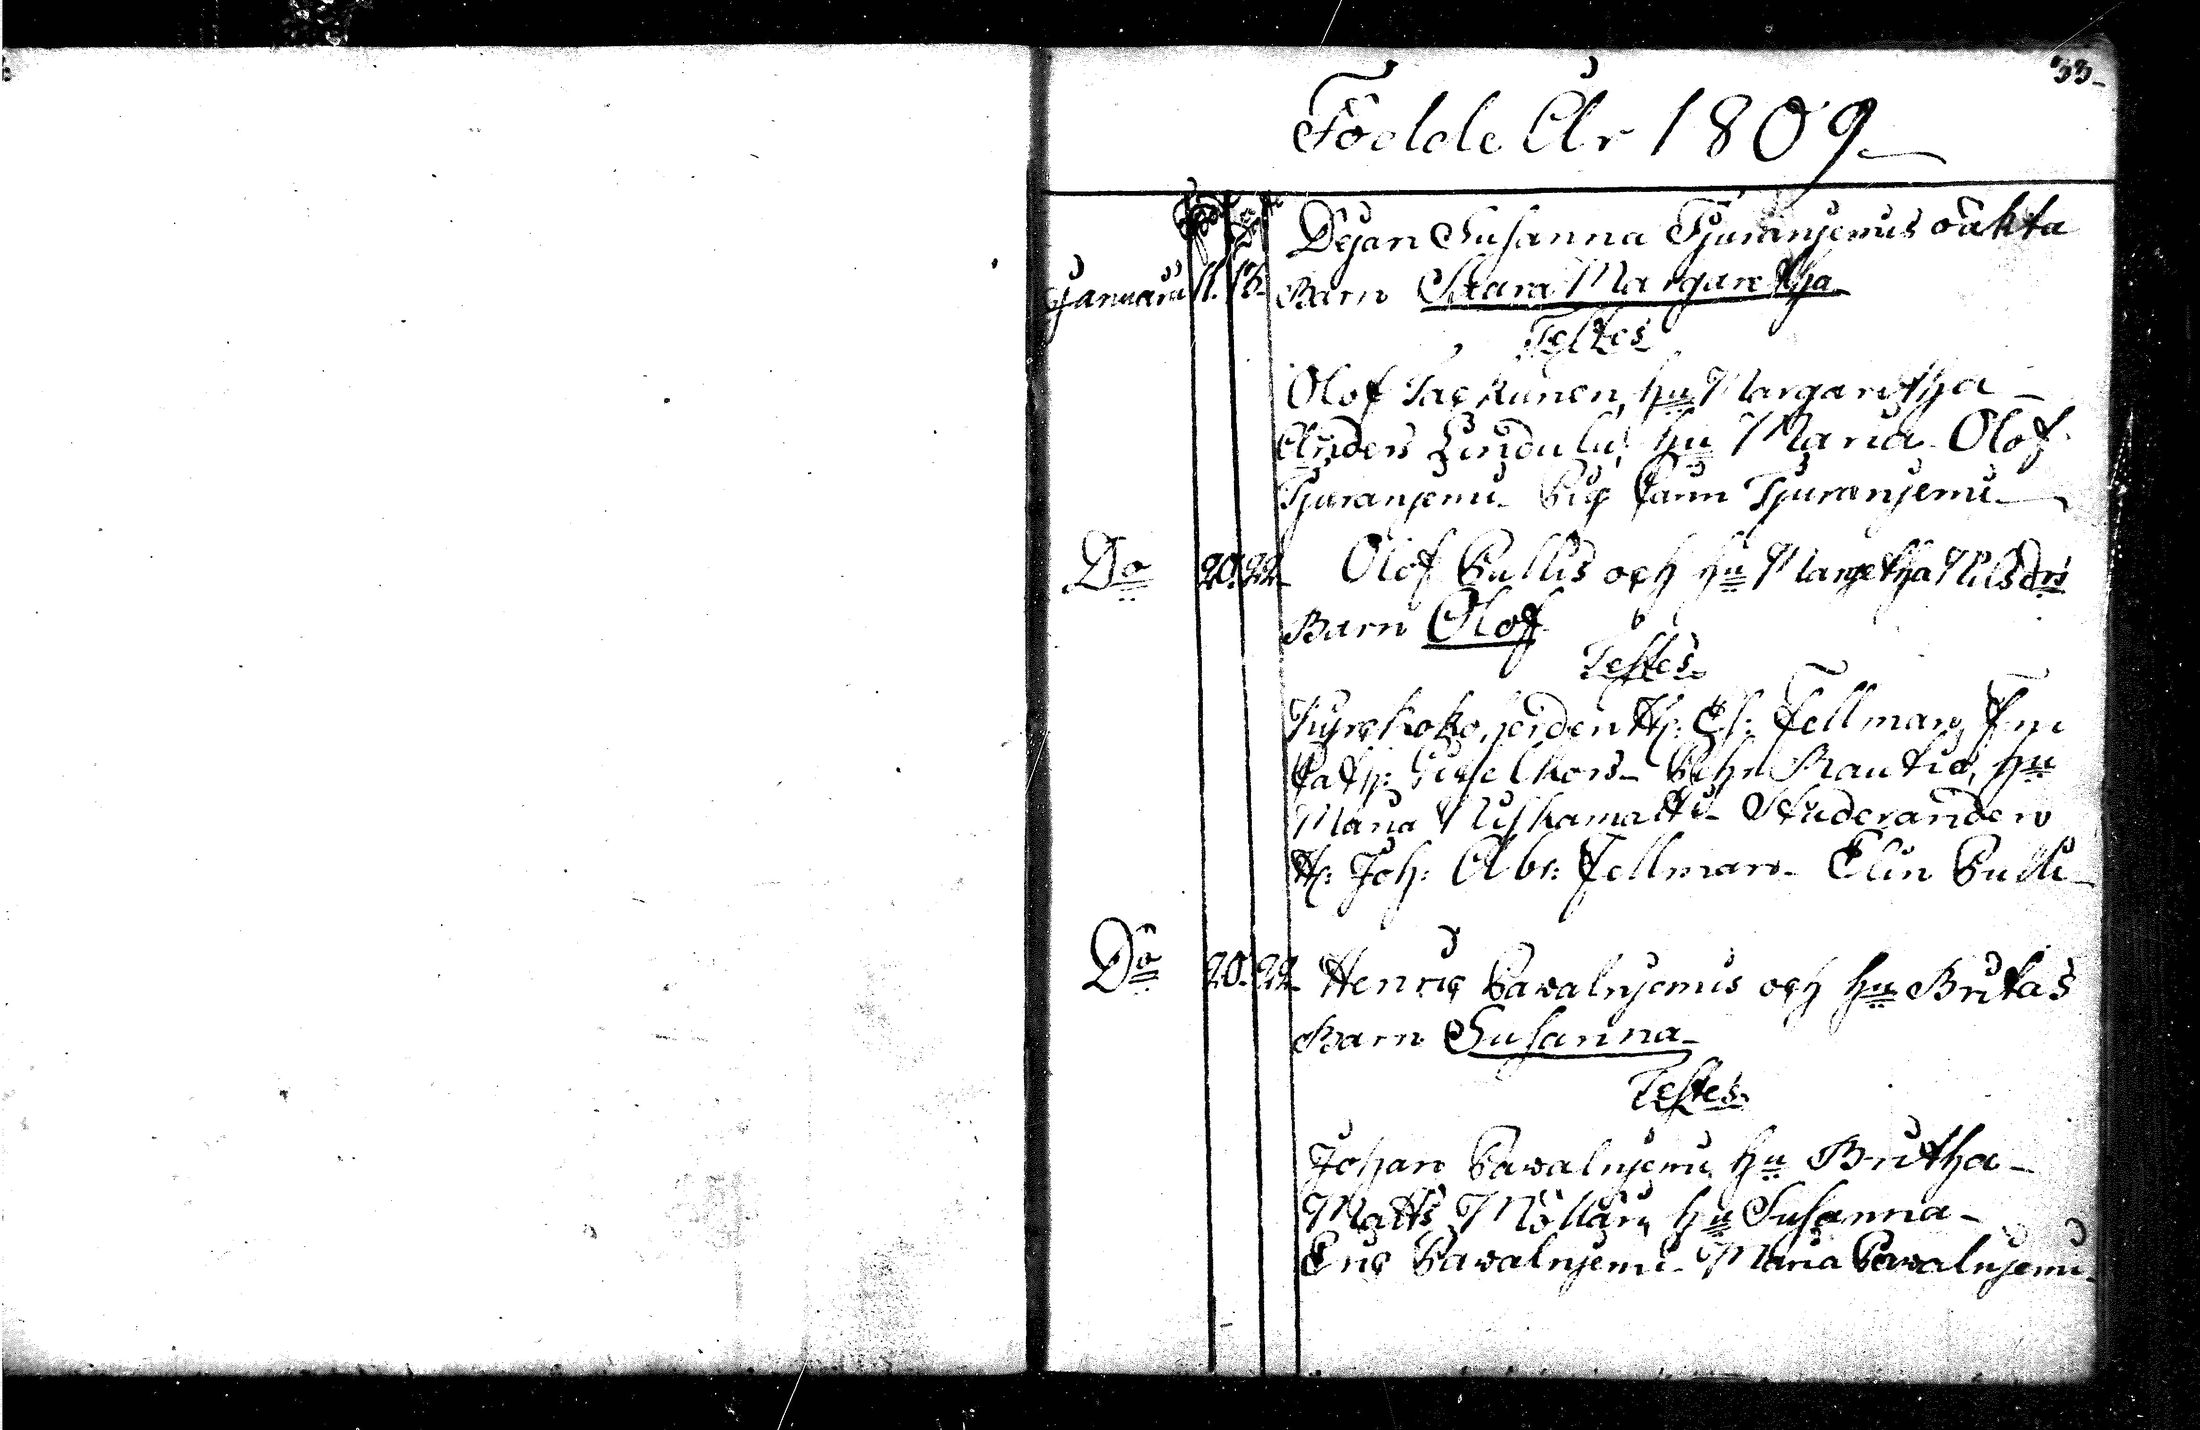 33.
Födde År 1809
Pigan Susanna Tjuranjemis oäkta
Januarii 11. 15. Barn Clara Margaretha
Testes
Olof Tackunen, hu Margaretha
Anders Lindulu, hu Maria Olof
Tjuranjemi Pig Carin Tjuranjemi
Do 20. 22. Olof Pullis och hu Margetha Nilsdrs
Barn Olof
Testes.
Kyrckoherden H: Es: Fellman, Fru
Cath: Gisselkors Pehr Rautio, hu
Maria Niskamatti Studeranden
H: Joh: Abr: Fellman Elin Pulli
Do 20. 22. Henric Pawalnjemis och hu Britas
Barn Susanna
Testes.
Johan Pawalnjemi hu Britha
Matts Möllari, hu Susanna
Eric Pawalnjemi Maria Pawalnjemi